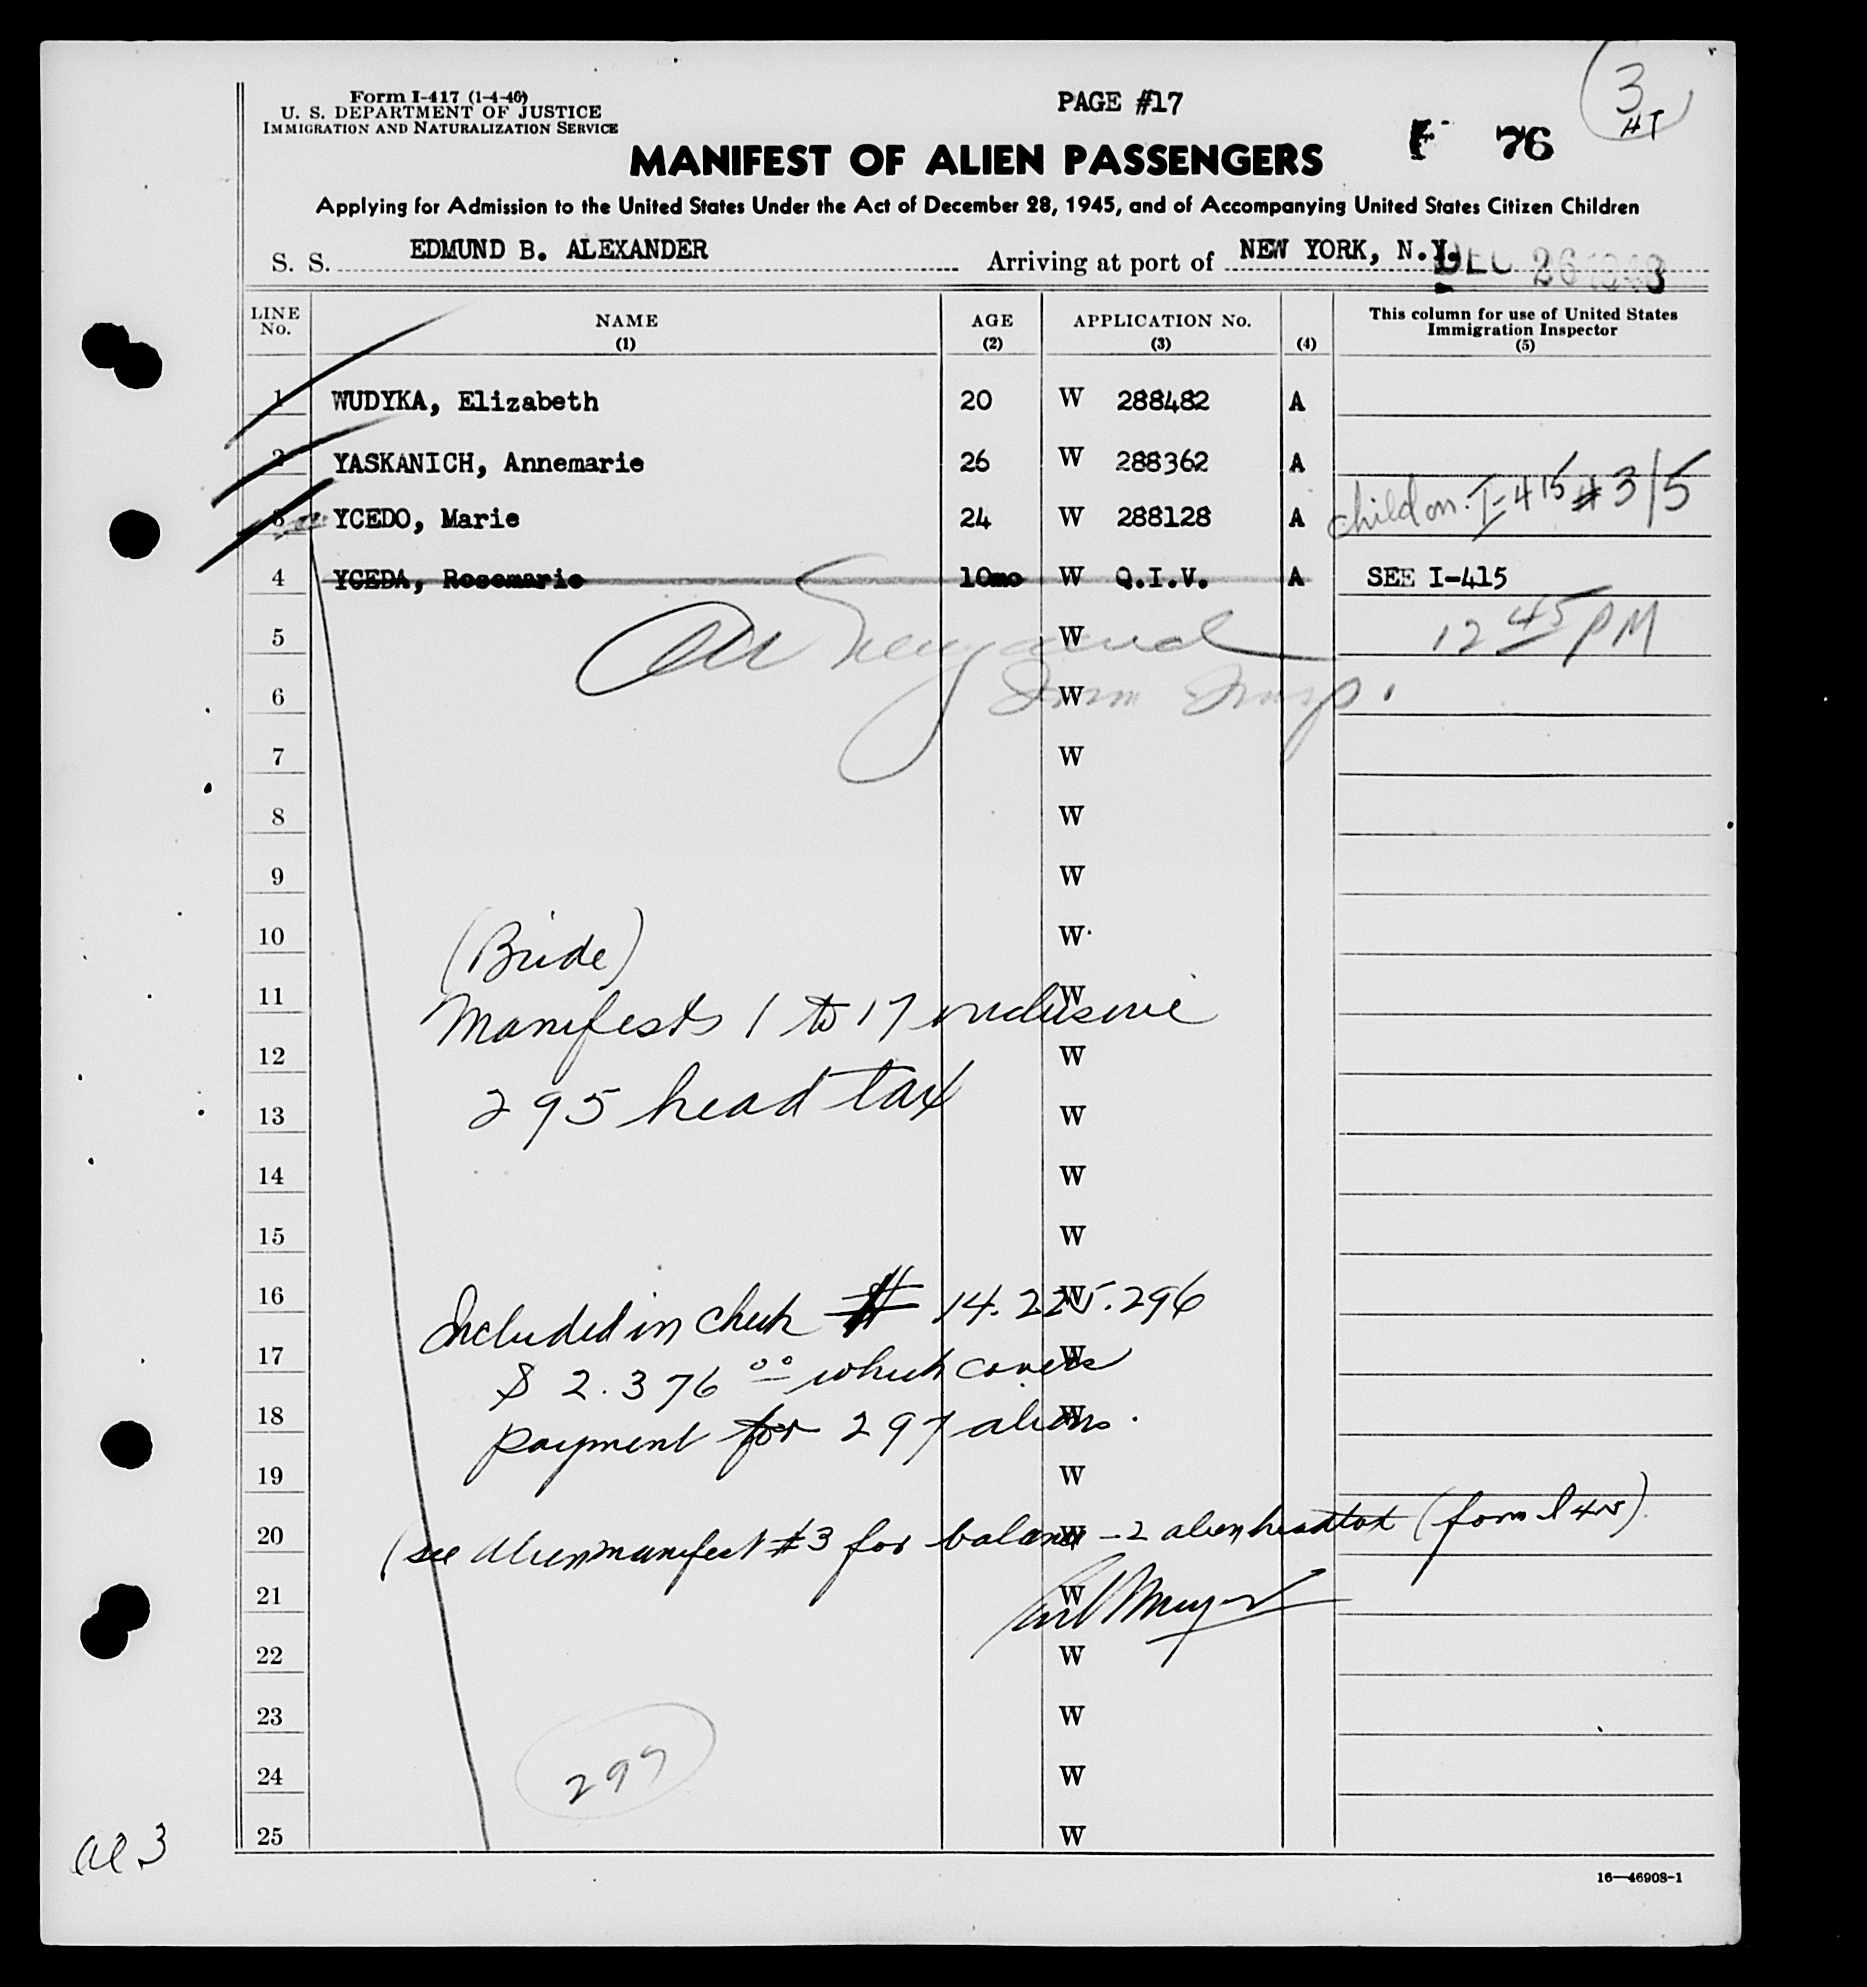 Form I-417 (1-4-46)
U. S. DEPARTMENT OF JUSTICE
IMMIGRATION AND NATURALIZATION SERVICE
PAGE #17
3
HT
F 76
MANIFEST OF ALIEN PASSENGERS
Applying for Admission to the United States Under the Act of December 28, 1945, and of Accompanying United States Citizen Children
S. S. EDMUND B. ALEXANDER Arriving at port of NEW YORK, N.Y. DEC 26
LINE No. NAME (1) AGE (2) APPLICATION No. (3) (4) This column for use of United States Immigration Inspector (5)
1 WUDYKA, Elizabeth 20 W 288482 A
2 YASKANICH, Annemarie 26 W 288362 A
3 YCEDO, Marie 24 W 288128 A child on I-415 #3/5
4 YCEDA, Rosemarie 10mo W Q.I.V. A SEE I-415
5 W 12 45 PM
6 W Imm Insp.
7 W
8 W
9 W
10 (Bride) W
11 Manifests 1 to 17 inclusive W
12 W
13 295 head tax W
14 W
15 W
16 Included in check # 14.225.296 W
17 $ 2.376 00 which covers W
18 payment for 297 aliens. W
19 W
20 (see alien manifest #3 for balance - 2 alien head tax (form I 415). W
21 W
22 W
23 W
24 297 W
25 W
al 3
16—46908-1